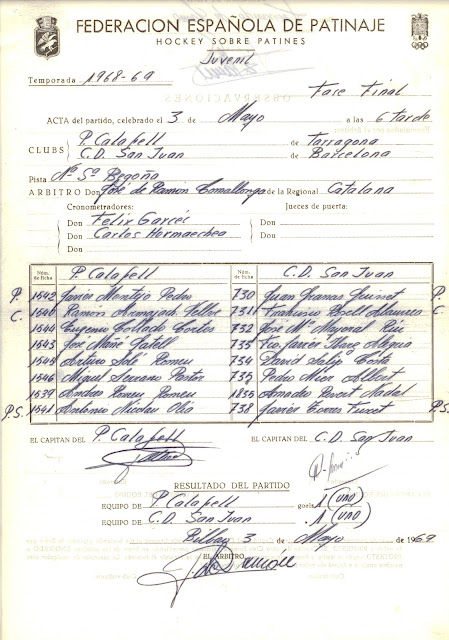 FEDERACION ESPAÑOLA DE PATINAJE
HOCKEY SOBRE PATINES
Juvenil
Temporada 1968-69
Fase Final
ACTA del partido, celebrado el 3 de Mayo a las 6 tarde
CLUBS P. Calafell de Tarragona
C.D. San Juan de Barcelona
Pista Nª Sª Begoña
ARBITRO Don José de Ramón de la Regional Catalana
Cronometradores: Jueces de puerta:
Don Felix Garcés Don
Don Carlos Hormaechea Don
Don Don
Núm. de ficha P. Calafell Núm. de ficha C.D. San Juan
P. 1542 Javier Montejo Pedro 730 Juan P.
C. Ramón 731 Francisco C.
1544 Eugenio Collado Cortes 732 José Mª Mayoral
1543 José Mañé 735 Fco. Javier
1545 Arturo Solé Romeu 734 David Costa
1546 Miguel Serrano Pastor 735 Pedro Mier Albert
1539 Andres Romeu Romeu 1836 Amadeo Nadal
P.S. 1541 Antonio Nicolau 738 Javier Torres P.S.
EL CAPITAN DEL P. Calafell EL CAPITAN DEL C.D. San Juan
RESULTADO DEL PARTIDO
EQUIPO DE P. Calafell goels 1 (UNO)
EQUIPO DE C.D. San Juan 1 (UNO)
Bilbao 3 de Mayo de 1969
EL ARBITRO